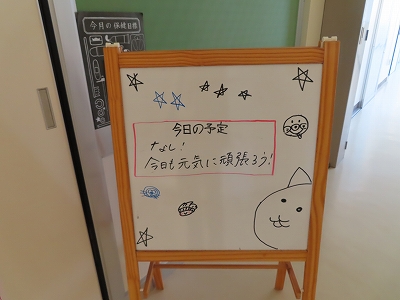 今月の保健目標
今日の予定
なし!
今日も元気に頑張ろう!